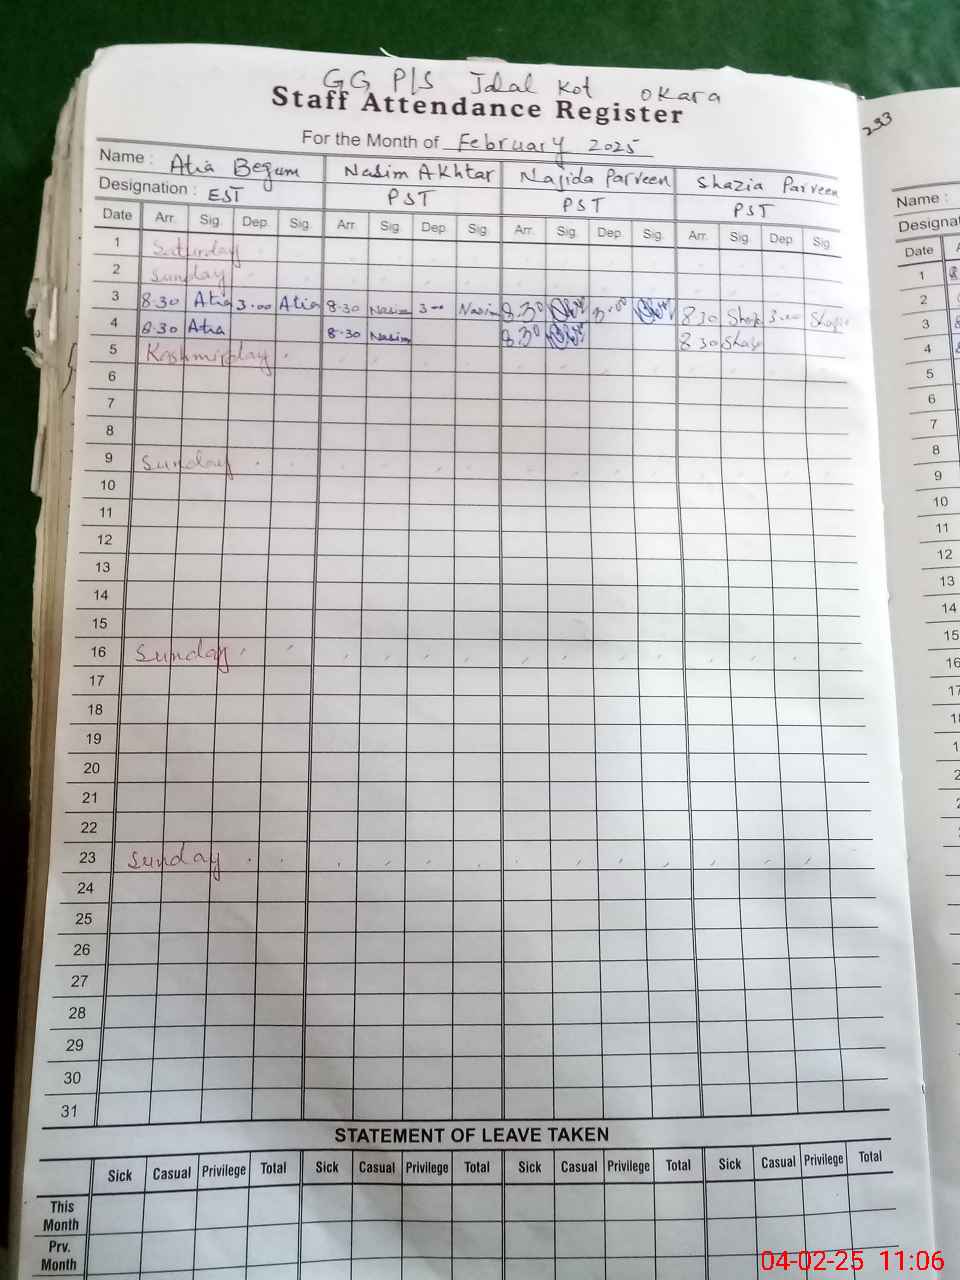 GG P/S Jalal Kot Okara
Staff Attendance Register
For the Month of February 2025
233
Name : Atia Begum Nasim Akhtar Najida Parveen Shazia Parveen
Designation : EST PST PST PST
Date Arr. Sig. Dep. Sig. Arr. Sig. Dep. Sig. Arr. Sig. Dep. Sig. Arr. Sig. Dep. Sig.
1 Satturday
2 Sunday
3 8.30 Atia 3.00 Atia 8.30 Nasim 3.00 Nasim 8.30 3.00 8.30 3.00
4 8.30 Atia 8.30 Nasim 8.30 8.30
5 Kashmir day
6
7
8
9 Sunday
10
11
12
13
14
15
16 Sunday
17
18
19
20
21
22
23 Sunday
24
25
26
27
28
29
30
31
STATEMENT OF LEAVE TAKEN
Sick Casual Privilege Total Sick Casual Privilege Total Sick Casual Privilege Total Sick Casual Privilege Total
This Month
Prv. Month
Name :
Date
1
2
3
4
5
6
7
8
9
10
11
12
13
14
15
16
04-02-25 11:06